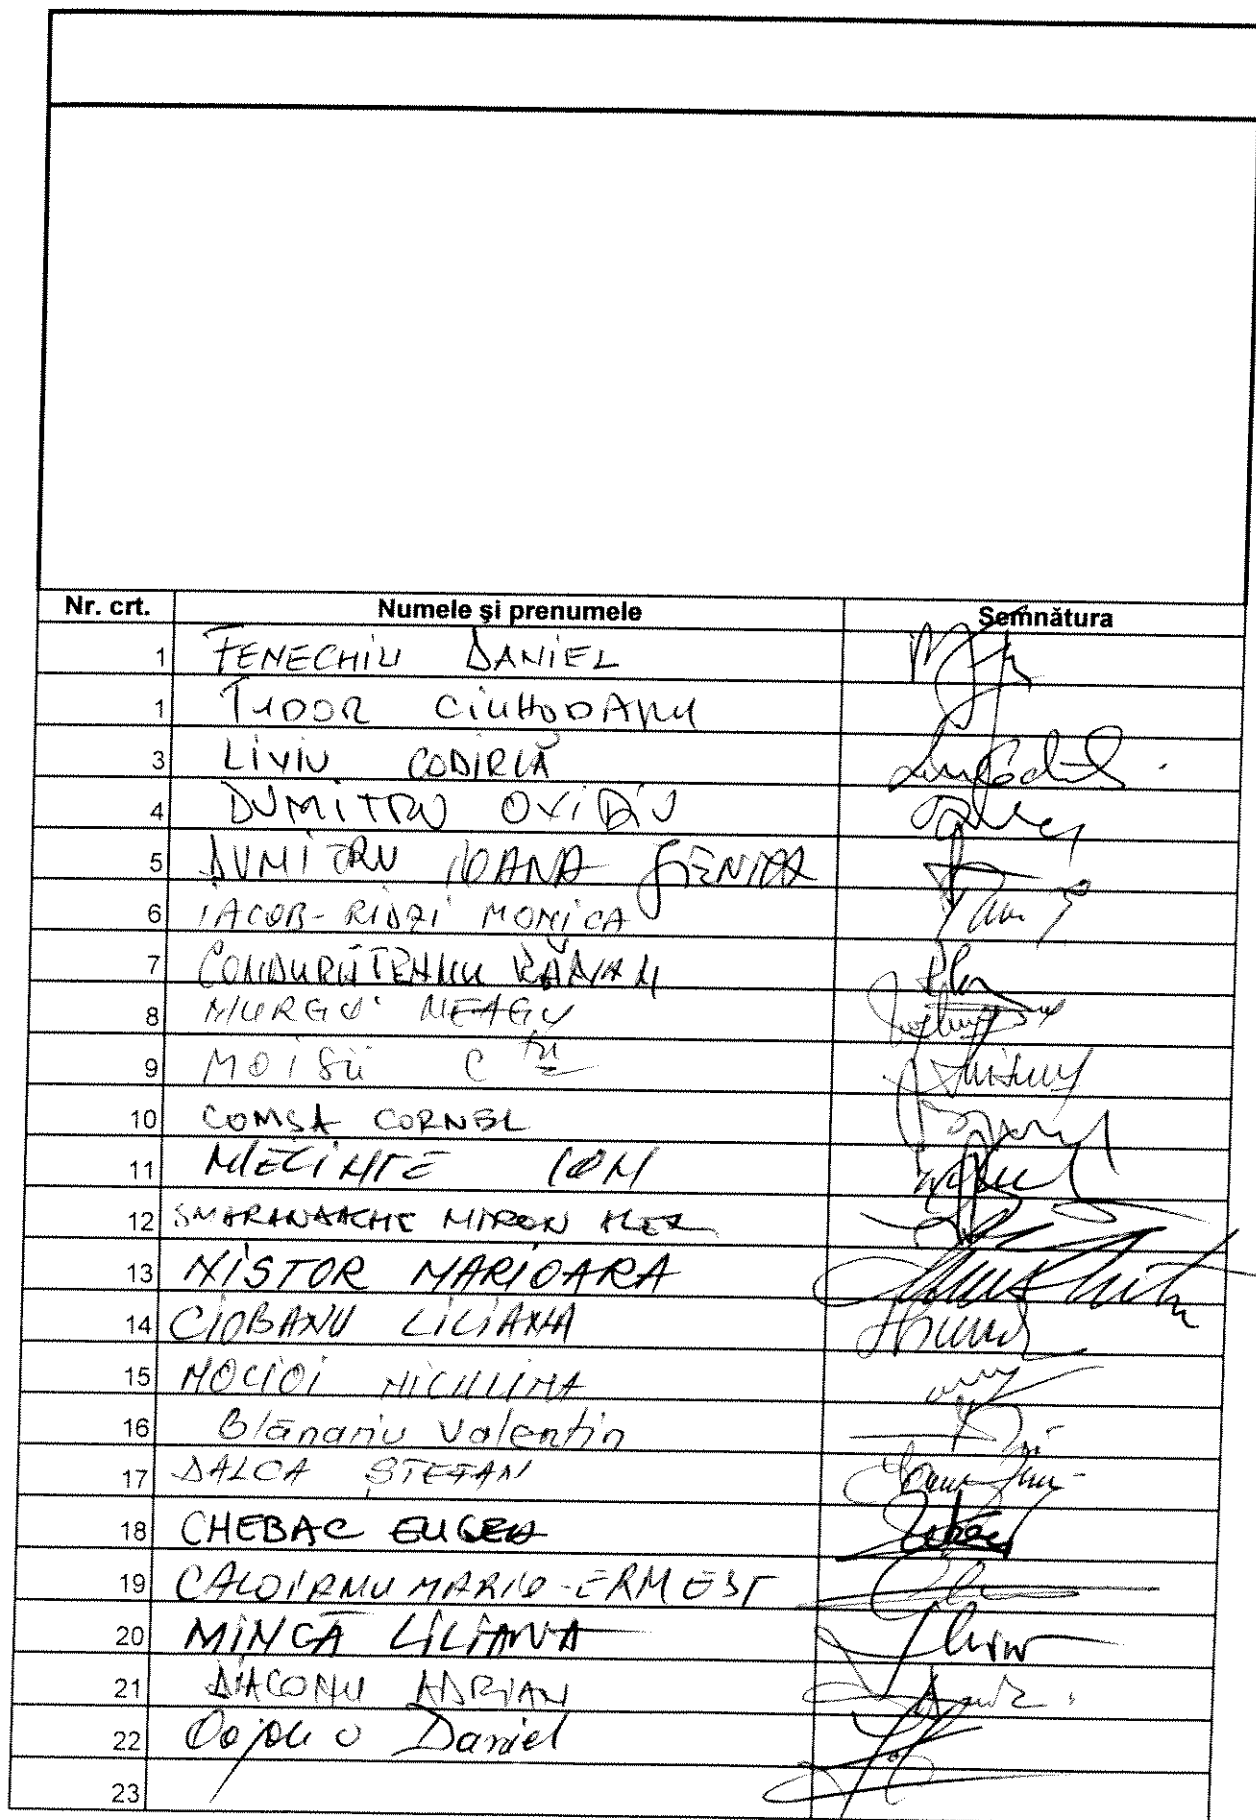 Nr. crt. Numele şi prenumele Semnătura
1 FENECHIU DANIEL
1 TUDOR CIUHODARU
3 LIVIU CODÎRLĂ
4 DUMITRU OVIDIU
5 DUMITRU IOANA JENICA
6 IACOB-RIDZI MONICA
7 RĂZVAN
8 MURGU NEAGU
9 MOISII C-tin
10 COMSA CORNEL
11 MECINTE ION
12 SMARANDACHE MIRON ALEX
13 NISTOR MARIOARA
14 CIOBANU LILIANA
15 MOCIOI NICULINA
16 Blănariu Valentin
17 DALCA ȘTEFAN
18 CHEBAC EUGEN
19 CALOIANU MARIO-ERNEST
20 MINCĂ LILIANA
21 DIACONU ADRIAN
22 Daniel
23